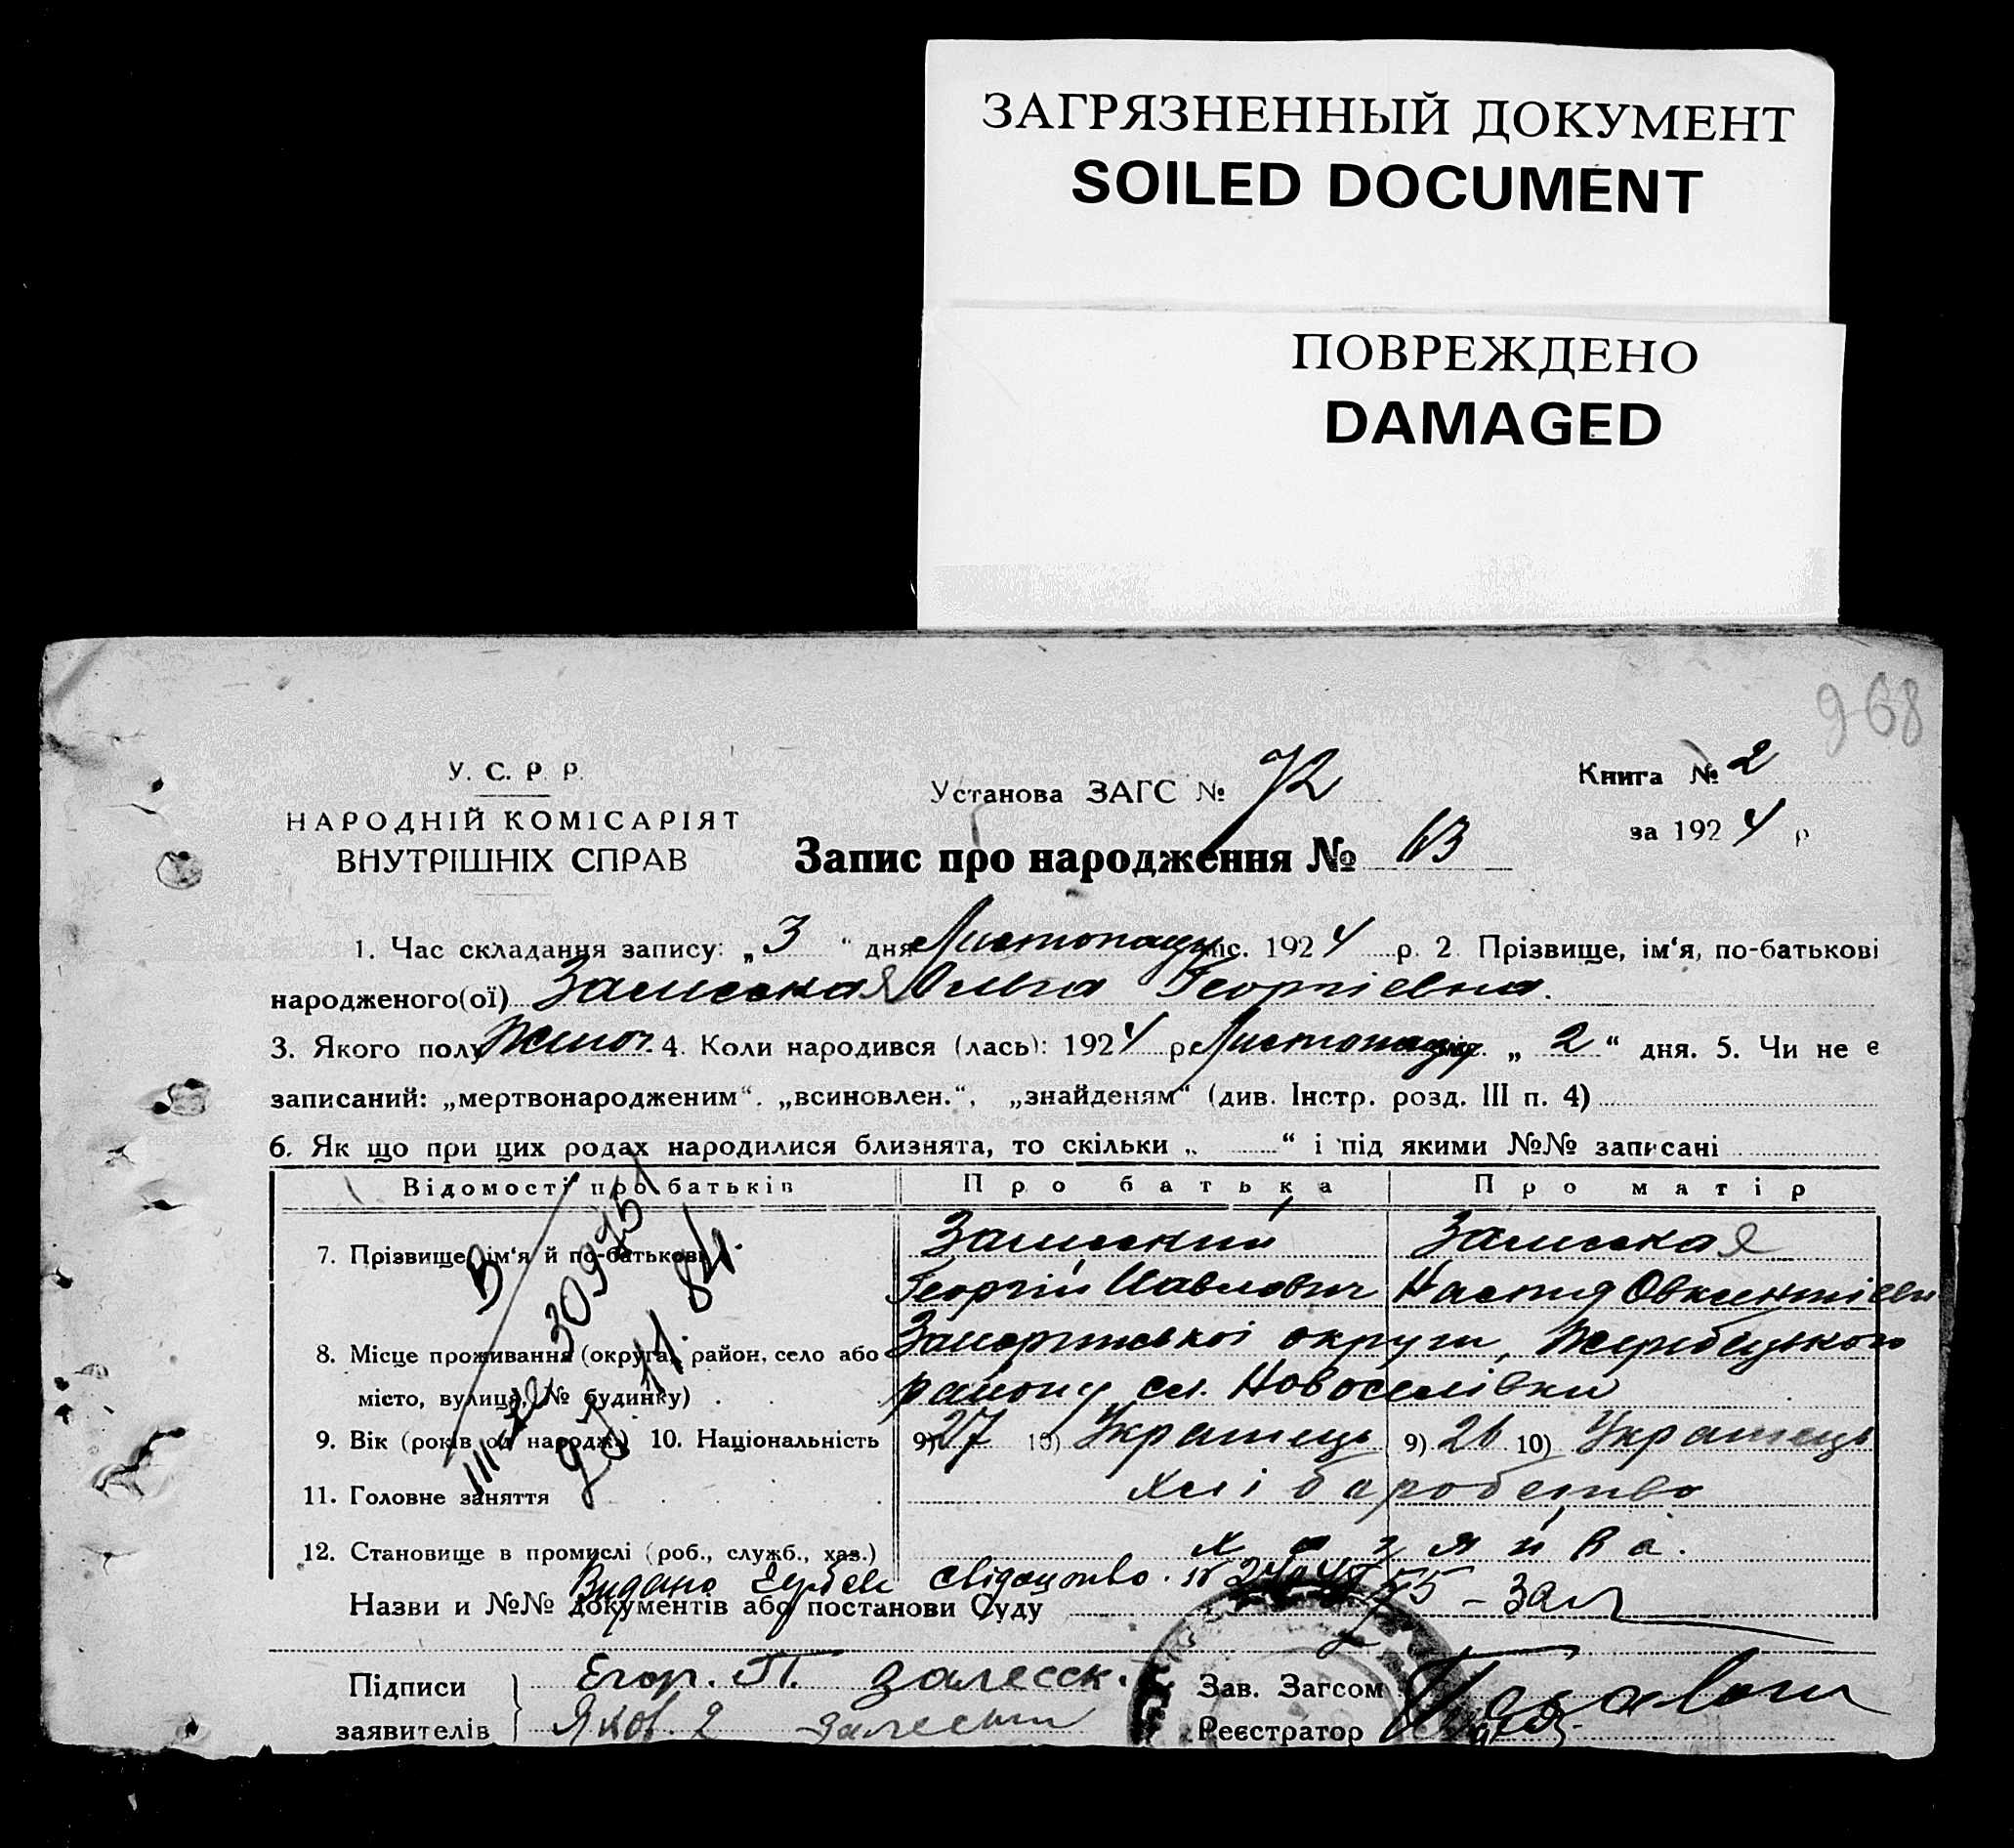 ЗАГРЯЗНЕННЫЙ ДОКУМЕНТ
SOILED DOCUMENT
ПОВРЕЖДЕНО
DAMAGED
968
У. С. Р. Р.
НАРОДНІЙ КОМІСАРІЯТ
ВНУТРІШНІХ СПРАВ
Установа ЗАГС № 72
Книга № 2
за 1924 р
Запис про народження № 63
1. Час складання запису: „3“ дня Листопаду міс. 1924 р. 2 Прізвище, ім‘я, по-батькові
народженого(ої) Залиская Ольга Георгієвна.
3. Якого полу Жіноч. 4. Коли народився (лась): 1924 р Листопаду міс. „2“ дня. 5. Чи не є
записаний: „мертвонародженим“. „всиновлен.“, „знайденям“ (див. Інстр. розд. III п. 4)
6. Як що при цих родах народилися близнята, то скільки „ “ і під якими №№ записані
Відомості про батьків Про батька Про матір
7. Прізвище, ім‘я й по-батькові Залиский Залиская
Георгій Павлович Настя
8. Місце проживання (округа, район, село або
місто, вулиця, № будинку)
округи, Жеребецького
району сл. Новоселівки
9. Вік (років од народж.) 10. Національність 9) 27 10) Українець 9) 26 10) Українець
11. Головне заняття хліборобство
12. Становище в промислі (роб., служб., хаз.) хозяйва.
Видано свідоцтво. 55 – Зал
Назви и №№ документів або постанови Суду
Підписи
заявителів
Егор. П. Залесск.
Яков.
Зав. Загсом
Реєстратор